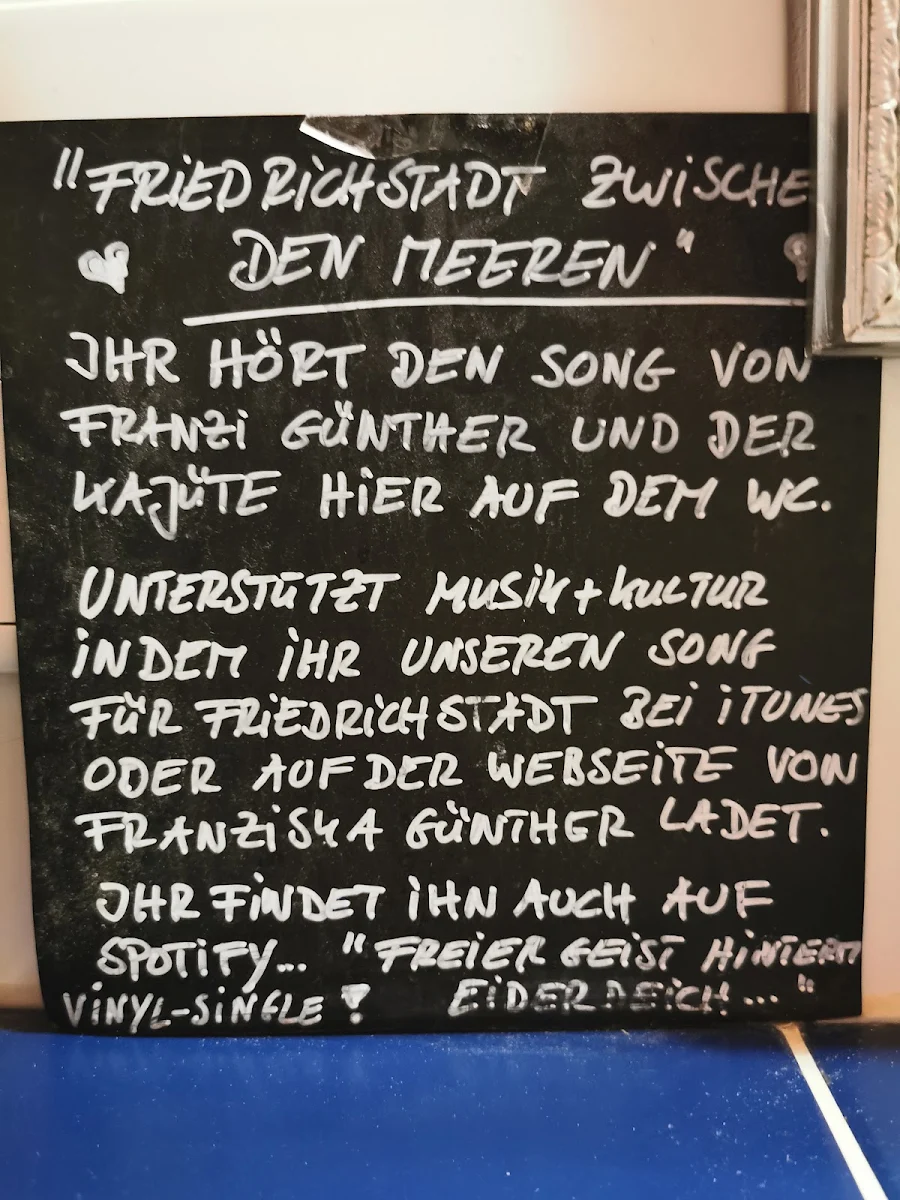 "FRiEDRiCHSTADT ZWiSCHE
DEN MEEREN"
IHR HÖRT DEN SONG VON
FRANZi GÜNTHER UND DER
KAJÜTE HiER AUF DEM WC.
UNTERSTÜTZT MUSiK+KULTUR
iNDEM iHR UNSEREN SONG
FÜR FRiEDRiCHSTADT BEi iTUNES
ODER AUF DER WEBSEiTE VON
FRANZiSKA GÜNTHER LADET.
IHR FiNDET iHN AUCH AUF
SPOTiFY... "FREiER GEiST HiNTERM
ViNYL-SiNGLE! EiDERDEiCH..."